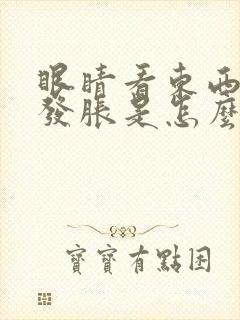 眼睛看東西
發脹是怎麼
寶寶有點困